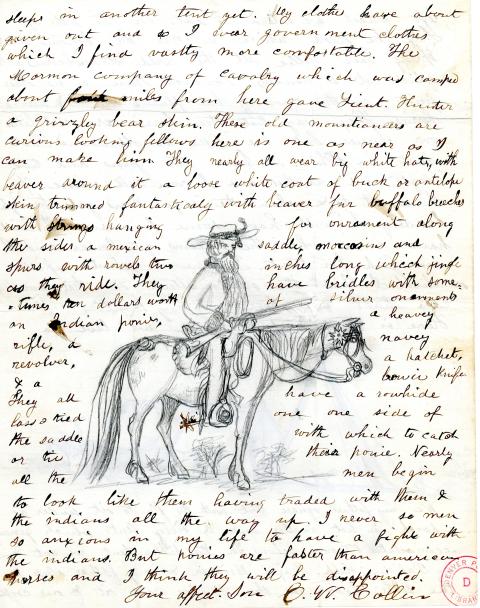 sleeps in another tent yet. My clothes have about
given out and so I wear government clothes
which I find vastly more comfortable. The
Mormon company of cavalry which was camped
about miles from here gave Lieut. Hunter
a grizzly bear skin. These old mountianders are
curious looking fellows here is one as near as I
can make him. They nearly all wear big white hats, with
beaver around it a loose white coat of buck or antelope
skin trimmed fantasticaly with beaver fur buffalo breeches
with strings hanging for ornament along
the sides a mexican saddle, moccasins and
spurs with rowels two inches long which jingle
as they ride. They have bridles with some-
-times ten dollars worth of silver onaments
on Indian ponie, a heavey
rifle, a navey
revolver, a hatchet,
& a bowie knife
They all have a rawhide
lasso tied one one side of
the saddle with which to catch
or tie their ponie. Nearly
all the men begin
to look like them having traded with them &
the indians all the way up. I never so men
so anxious in my life to have a fight with
the indians. But ponies are faster than american
horses and I think they will be disappointed.
Your affect. Son C. W. Collin
DENVER
D
LIBRARY